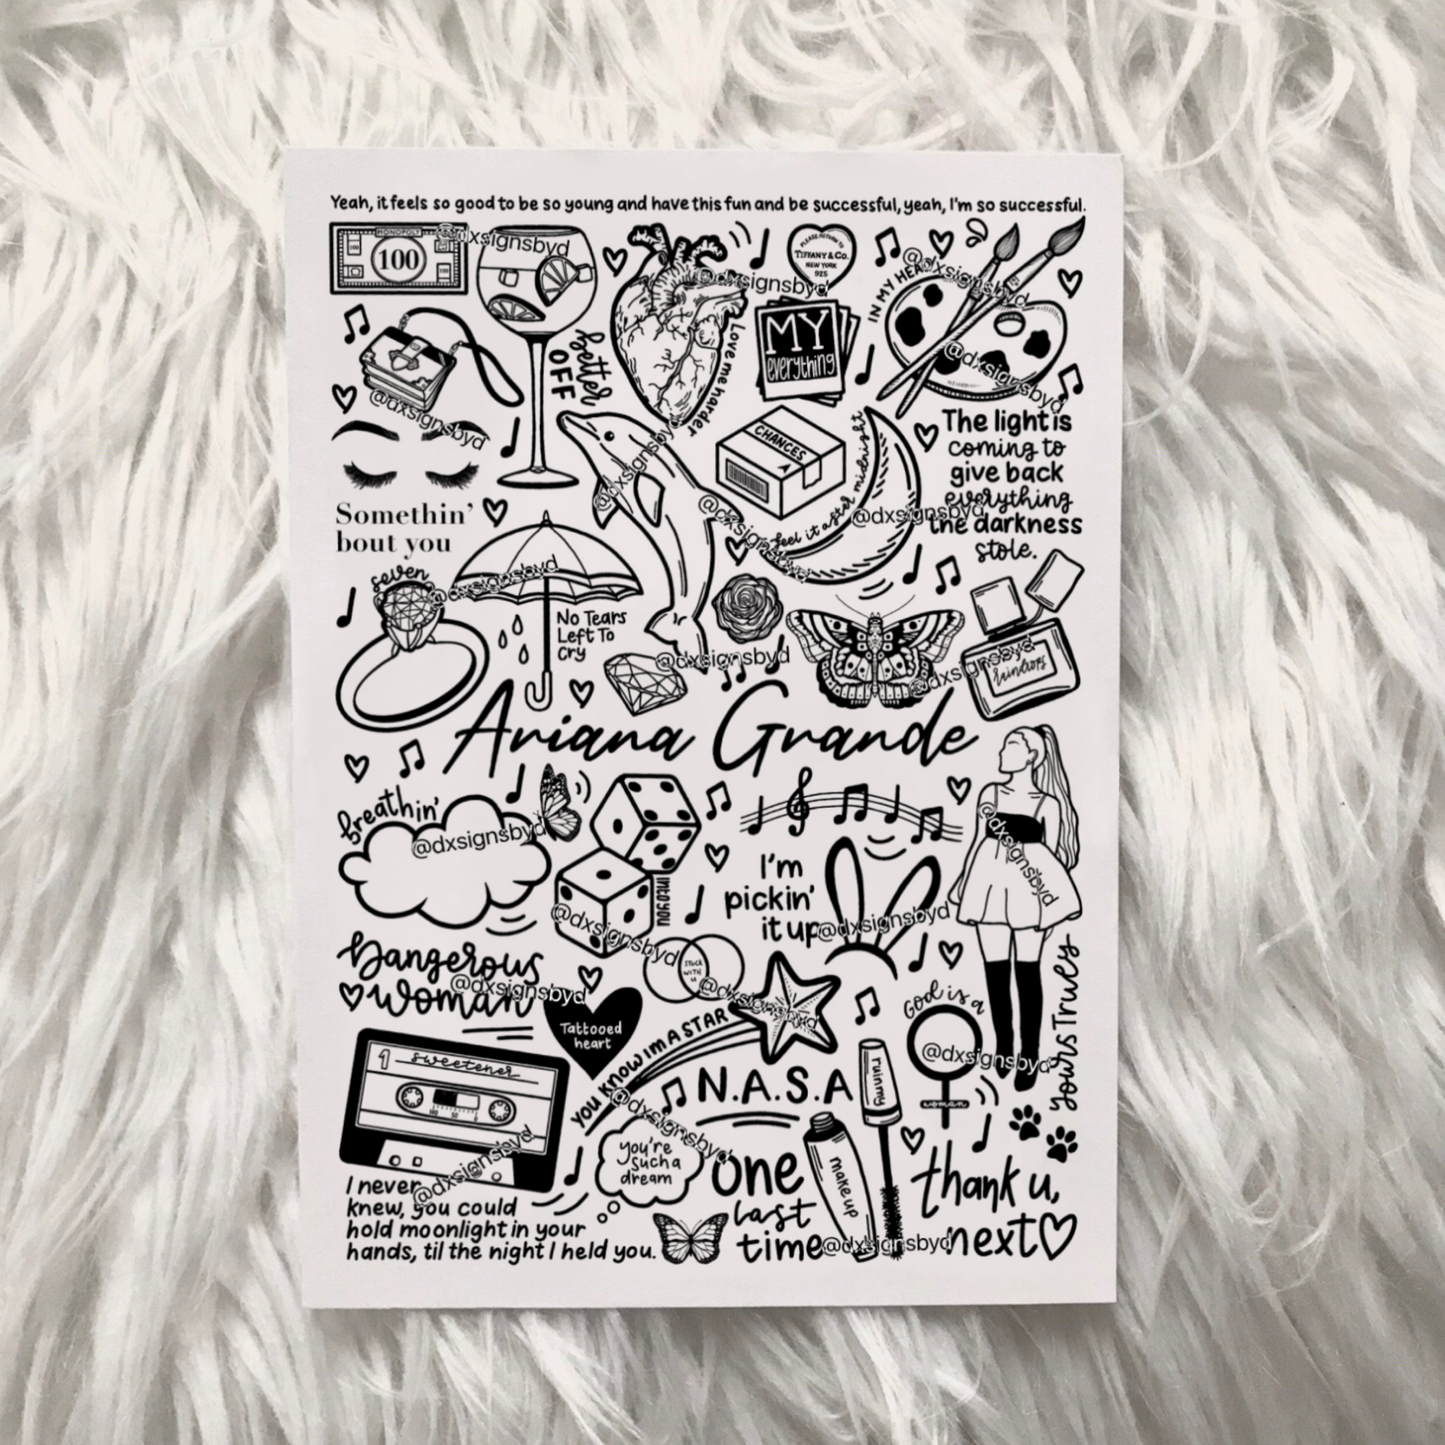 Yeah, it feels so good to be so young and have this fun and be successful, yeah, I'm so successful.
MONOPOLY
100
@dxsignsbyd
better
OFF
Love me harder
PLEASE RETURN TO
TIFFANY & CO.
NEW YORK
925
MY
everything
IN MY HEAD
@dxsignsbyd
@dxsignsbyd
@dxsignsbyd
@dxsignsbyd
@dxsignsbyd
CHANCES
feel it after midnight
The light is
coming to
give back
everything
the darkness
stole.
@dxsignsbyd
@dxsignsbyd
Somethin'
bout you
seven
@dxsignsbyd
No Tears
Left To
Cry
@dxsignsbyd
@dxsignsbyd
Raindrops
Ariana Grande
breathin'
@dxsignsbyd
into you
@dxsignsbyd
I'm
pickin'
it up
@dxsignsbyd
@dxsignsbyd
Dangerous
woman
@dxsignsbyd
Tattooed
heart
stuck
with
u
@dxsignsbyd
YOU KNOW IM A STAR
God is a
woman
@dxsignsbyd
Yours Truly
1 sweetener
@dxsignsbyd
N.A.S.A
@dxsignsbyd
you're
such a
dream
one
last
time
ruinmy
make up
@dxsignsbyd
thank u,
next
I never
knew, you could
hold moonlight in your
hands, til the night I held you.